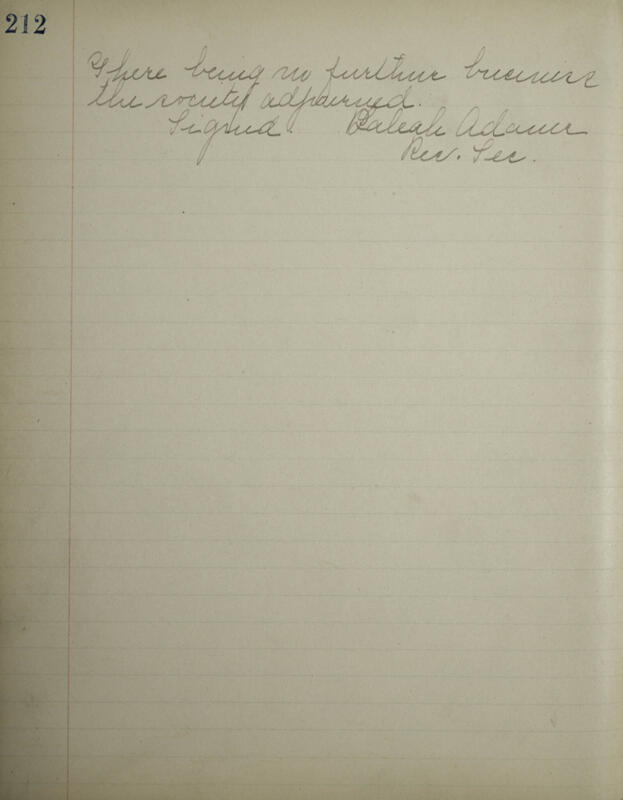 212
There being no further business
the society adjourned.
Signed. Baleah Adams
Rec. Sec.